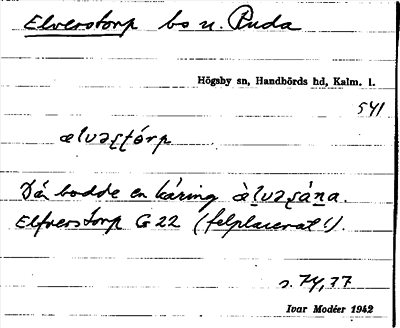 Elverstorp bs u. Ruda
Högsby sn, Handbörds hd, Kalm. l.
541
ælvəʂʈórp
Där bodde en käring ælvəʂána.
Elfverstorp G 22 (felplacerat!).
s. 74, 77
Ivar Modéer 1942